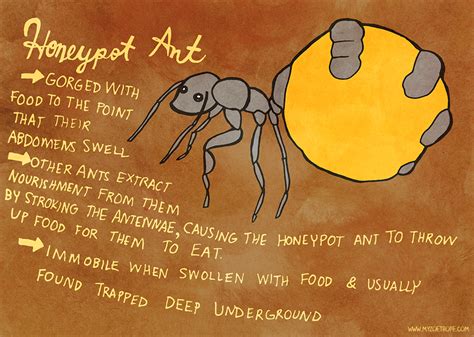 Honeypot Ant
GORGED WITH
FOOD TO THE POINT
THAT THEIR
ABDOMENS SWELL
OTHER ANTS EXTRACT
NOURISHMENT FROM THEM
BY STROKING THE ANTENNAE, CAUSING THE HONEYPOT ANT TO THROW
UP FOOD FOR THEM TO EAT.
IMMOBILE WHEN SWOLLEN WITH FOOD & USUALLY
FOUND TRAPPED DEEP UNDERGROUND
WWW.MYZOETROPE.COM